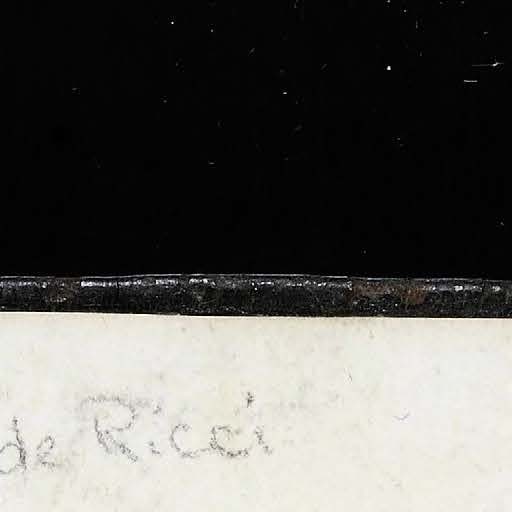 de Ricci